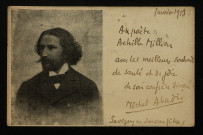 Janvier 1903
Au poète
Achille Millien
avec les meilleurs souhaits
de santé et de joie
de son confrère
Michel Abadie